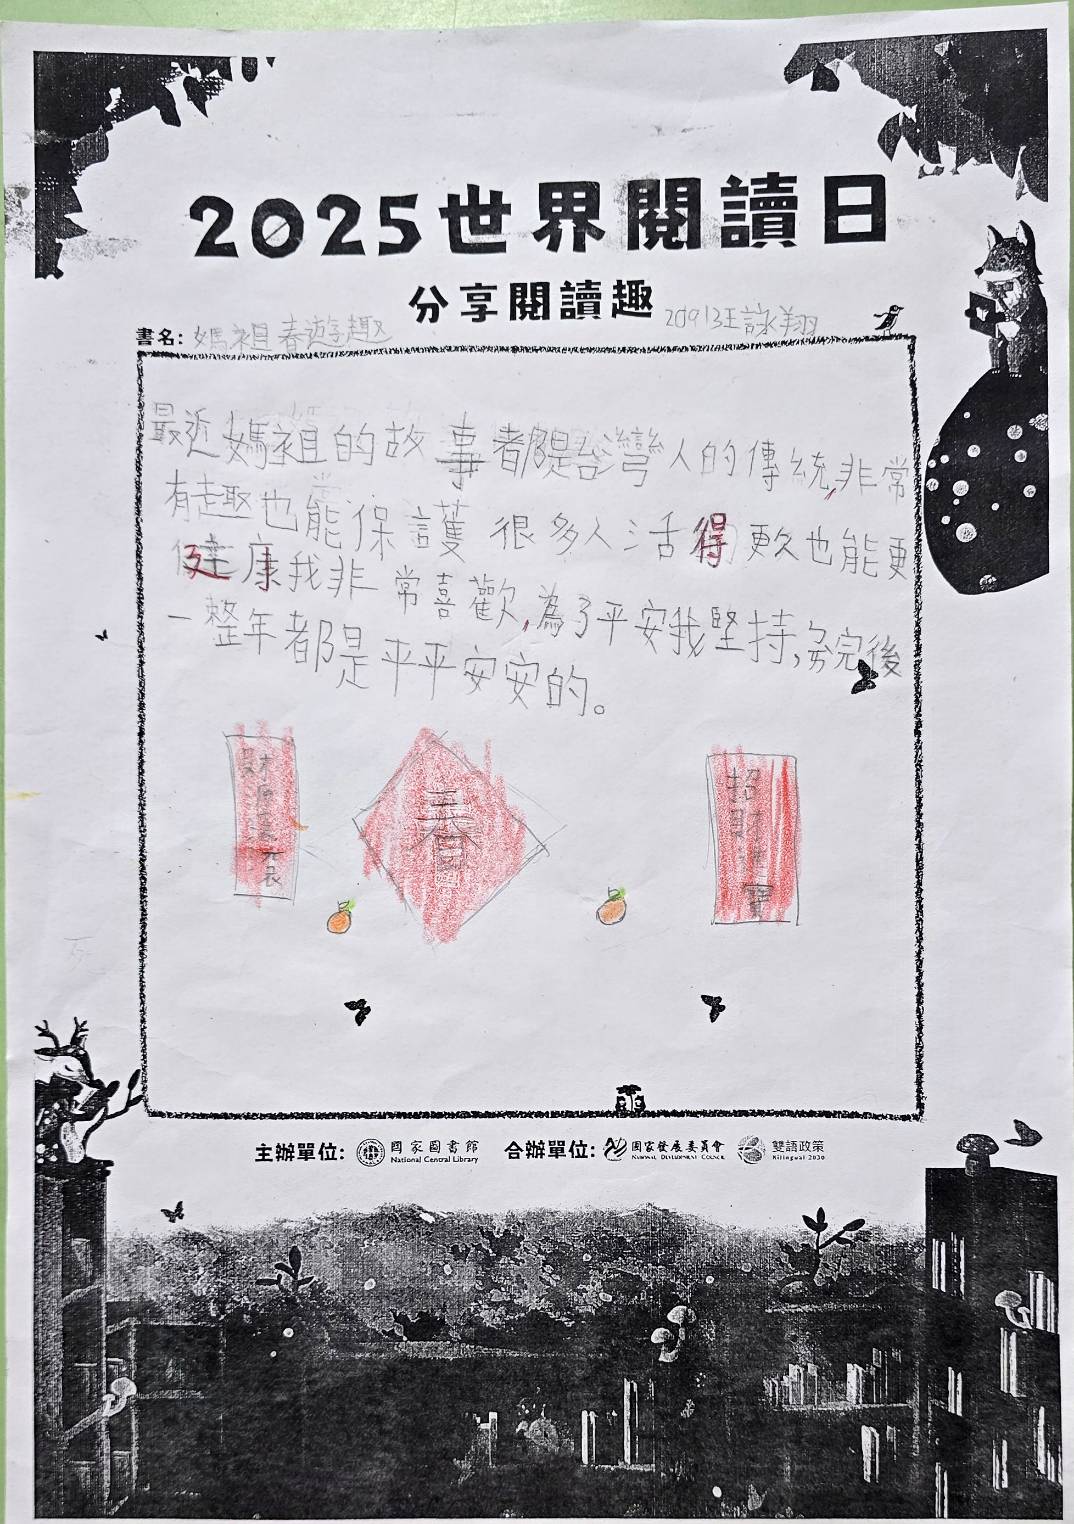 2025世界閱讀日
分享閱讀趣
20913王詠翔
書名: 媽祖春遊趣
最近媽祖的故事都是台灣人的傳統,非常
有趣也能保護很多人活得更久也能更
健康我非常喜歡,為了平安我堅持,
完後
一整年都是平平安安的。
財
春
招財進寶
主辦單位: 國家圖書館
National Central Library
合辦單位: 國家發展委員會
National Development Council
雙語政策
Bilingual 2030